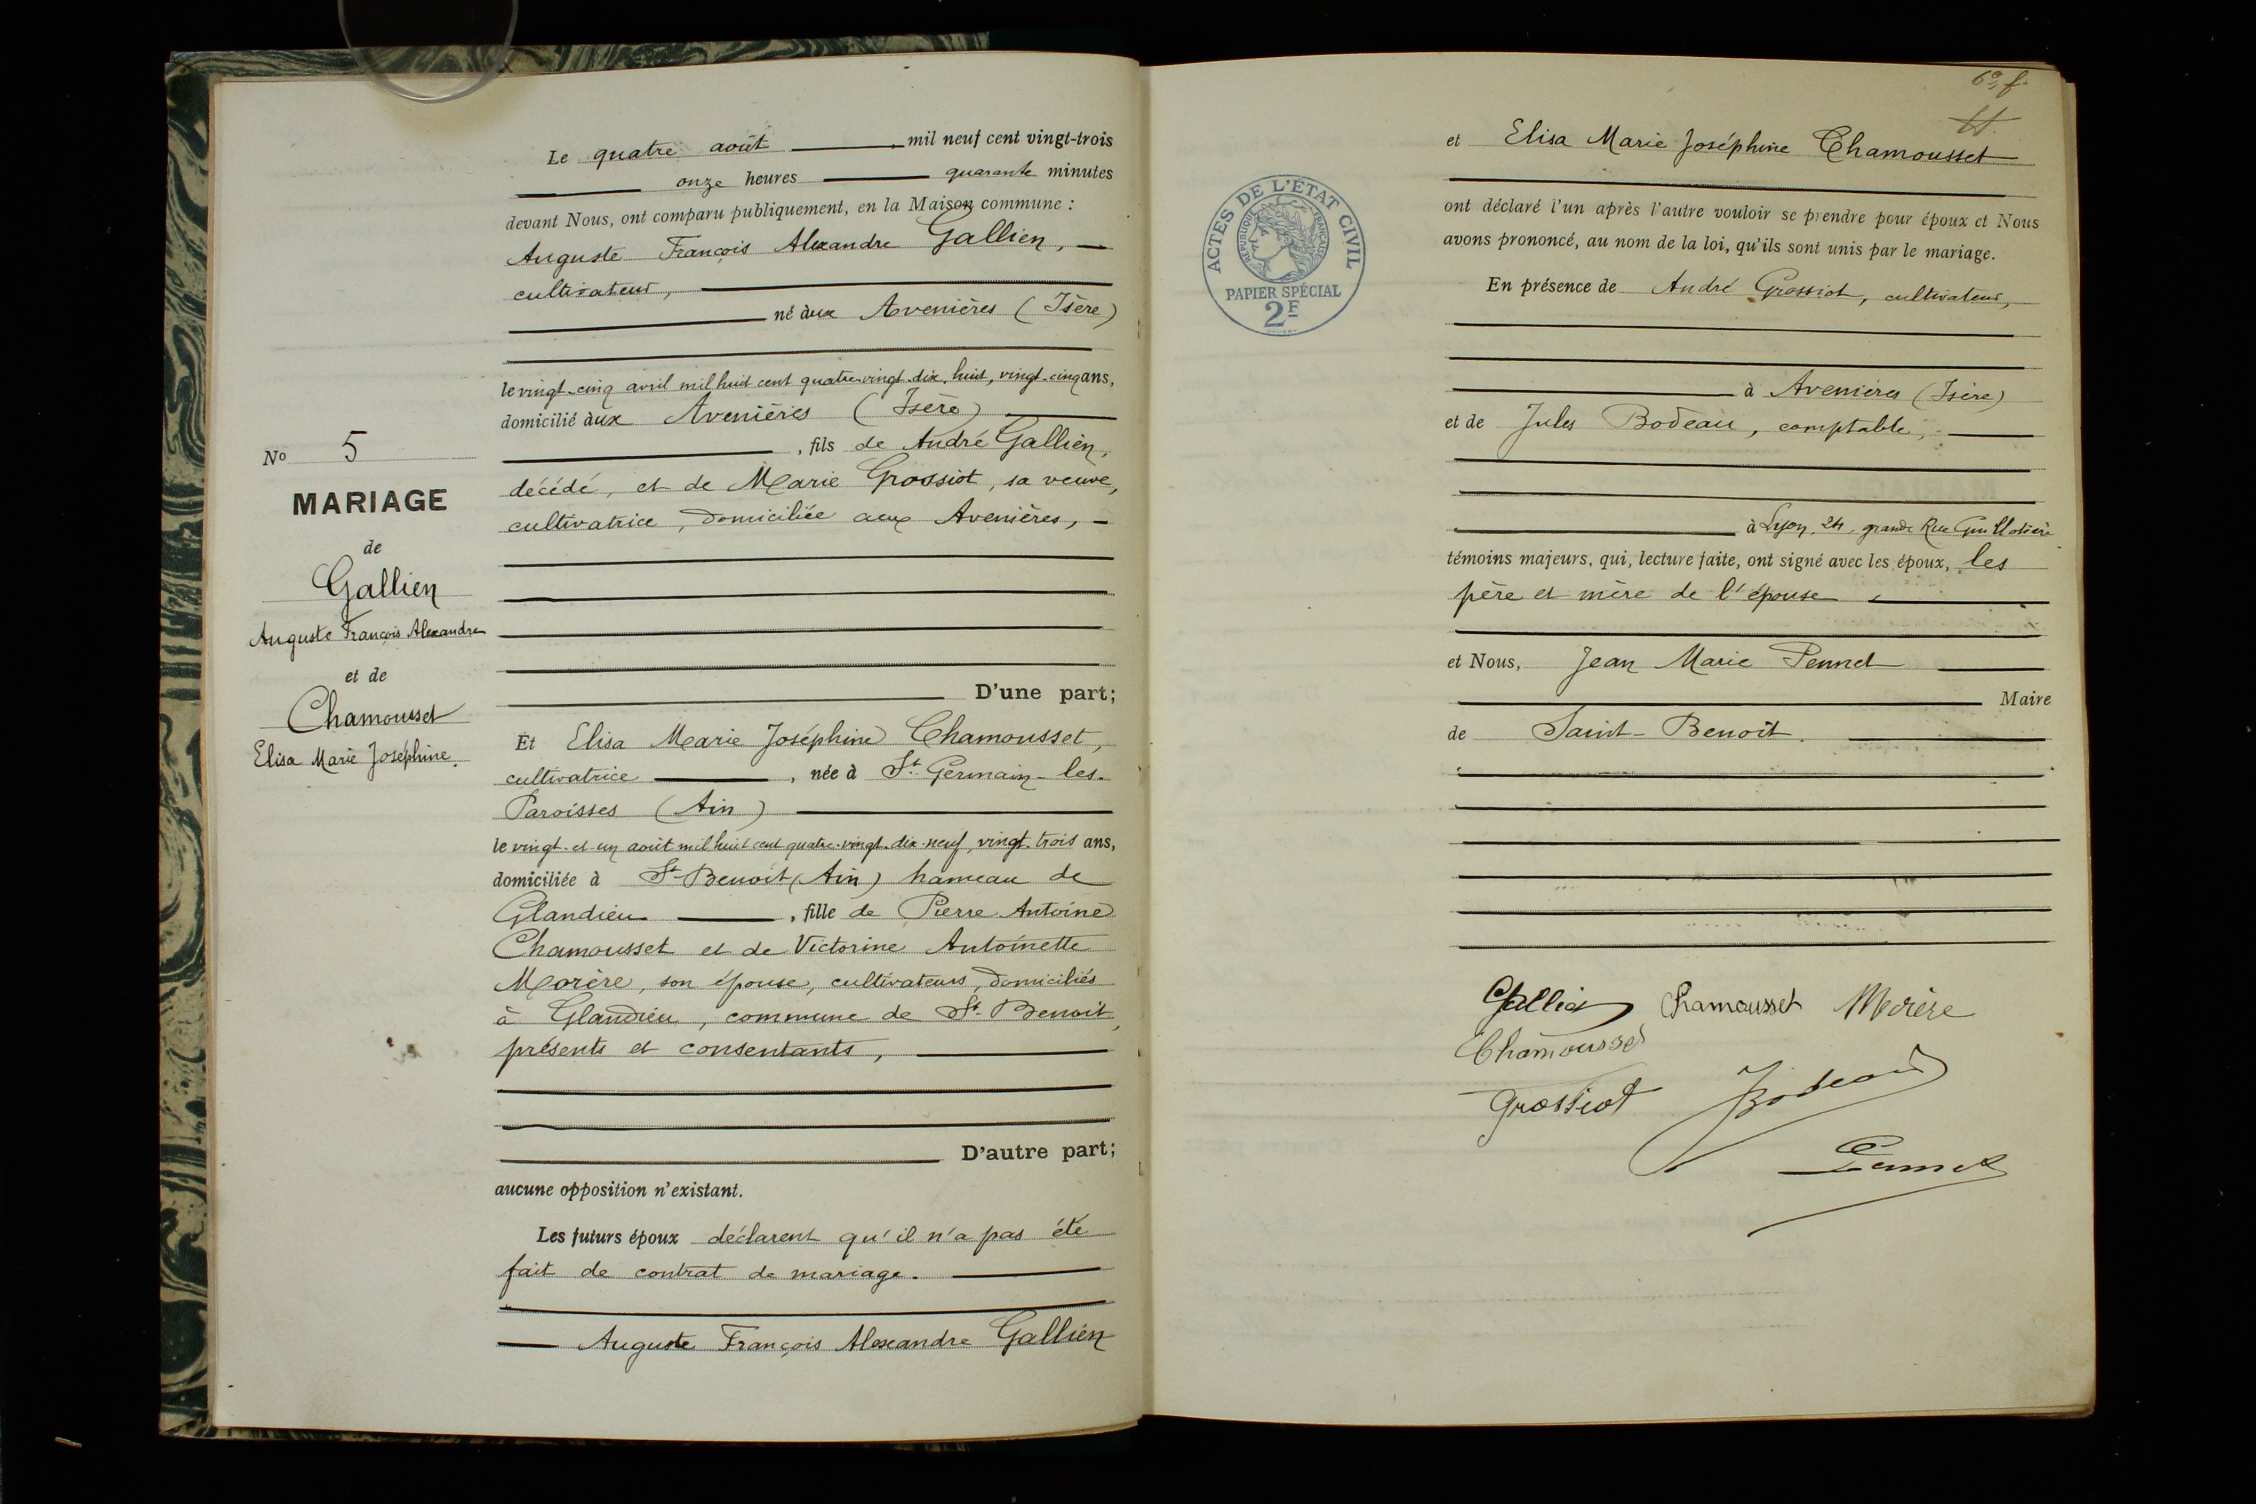 Le quatre août mil neuf cent vingt-trois
onze heures quarante minutes
devant Nous, ont comparu publiquement, en la Maison commune :
Auguste François Alexandre Gallien,
cultivateur,
né aux Avenières (Isère)
le vingt-cinq avril mil huit cent quatre-vingt-dix-huit, vingt-cinq ans,
domicilié aux Avenières (Isère)
, fils de André Gallien,
décédé, et de Marie Grossiot, sa veuve,
cultivatrice, domiciliée aux Avenières,
D'une part;
Et Elisa Marie Joséphine Chamousset,
cultivatrice , née à St Germain-les-
Paroisses (Ain)
le vingt-et-un août mil huit cent quatre-vingt-dix-neuf, vingt-trois ans,
domiciliée à St-Benoit (Ain) hameau de
Glandieu , fille de Pierre Antoine
Chamousset et de Victorine Antoinette
Morère, son épouse, cultivateurs, domiciliés
à Glandieu, commune de St-Benoit,
présents et consentants,
D'autre part;
aucune opposition n'existant.
Les futurs époux déclarent qu'il n'a pas été
fait de contrat de mariage.
Auguste François Alexandre Gallien
No 5
MARIAGE
de
Gallien
Auguste François Alexandre
et de
Chamousset
Elisa Marie Joséphine.
6e f.
et Elisa Marie Joséphine Chamousset
ont déclaré l'un après l'autre vouloir se prendre pour époux et Nous
avons prononcé, au nom de la loi, qu'ils sont unis par le mariage.
En présence de André Grossiot, cultivateur,
à Avenières (Isère)
et de Jules Bodeau, comptable,
à Lyon, 24, grande Rue Guillotière
témoins majeurs, qui, lecture faite, ont signé avec les époux, les
père et mère de l'épouse
et Nous, Jean Marie Pennet
Maire
de Saint-Benoît.
ACTES DE L'ÉTAT CIVIL
RÉPUBLIQUE FRANÇAISE
PAPIER SPÉCIAL
2F
Gallien Chamousset Morère
Chamousset
Grossiot Bodeau
Pennet